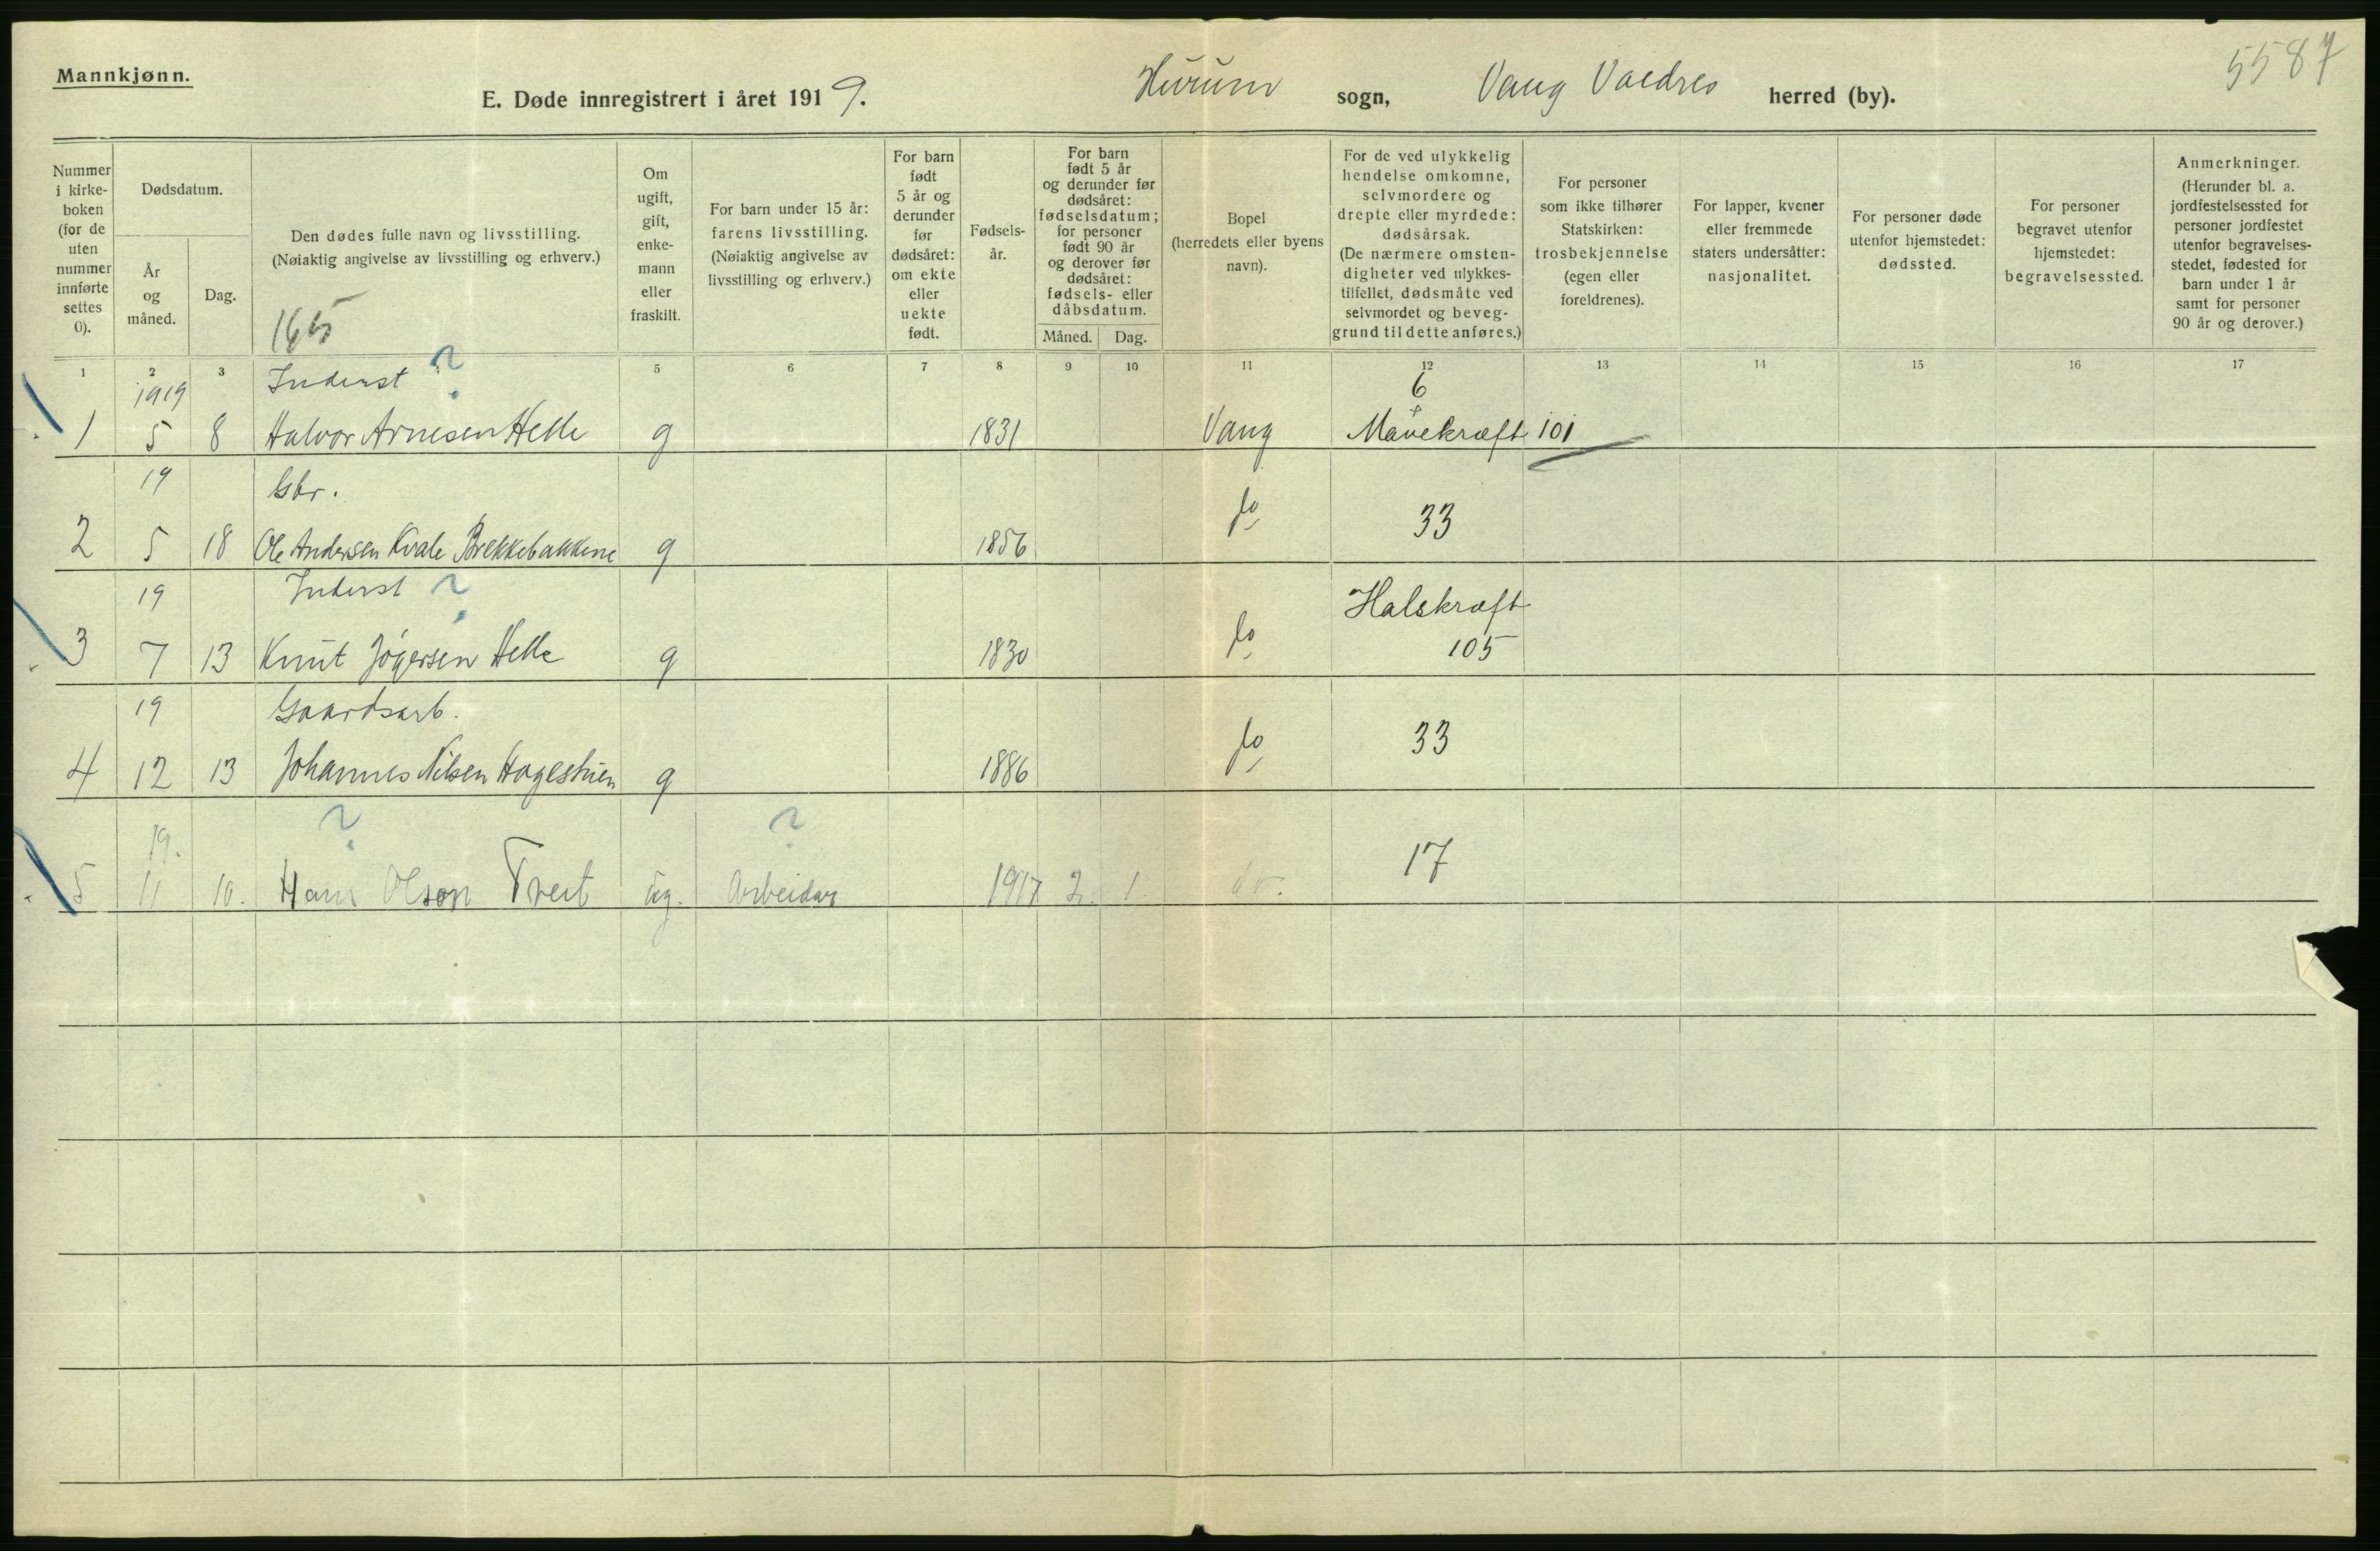 Mannkjønn.
5587
E. Døde innregistrert i året 1919. Hurum sogn, Vang Valdres herred (by).
Nummer i kirke-boken (for de uten nummer innførte settes 0).
Dødsdatum.
År og måned.
Dag.
Den dødes fulle navn og livsstilling.
(Nøiaktig angivelse av livsstilling og erhverv.)
165
Om ugift, gift, enke-mann eller fraskilt.
For barn under 15 år: farens livsstilling. (Nøiaktig angivelse av livsstilling og erhverv.)
For barn født 5 år og derunder før dødsåret: om ekte eller uekte født.
Fødsels-år.
For barn født 5 år og derunder før dødsåret: fødselsdatum; for personer født 90 år og derover før dødsåret: fødsels- eller dåbsdatum.
Måned.
Dag.
Bopel (herredets eller byens navn).
For de ved ulykkelig hendelse omkomne, selvmordere og drepte eller myrdede: dødsårsak. (De nærmere omsten-digheter ved ulykkes-tilfellet, dødsmåte ved selvmordet og beveg-grund til dette anføres.)
For personer som ikke tilhører Statskirken: trosbekjennelse (egen eller foreldrenes).
For lapper, kvener eller fremmede staters undersåtter: nasjonalitet.
For personer døde utenfor hjemstedet: dødssted.
For personer begravet utenfor hjemstedet: begravelsessted.
Anmerkninger. (Herunder bl. a. jordfestelsessted for personer jordfestet utenfor begravelses-stedet, fødested for barn under 1 år samt for personer 90 år og derover.)
1 2 3 5 6 7 8 9 10 11 12 13 14 15 16 17
1919 Inderst ? 6
1 5 8 Halvor Arnesen Helle g 1831 Vang Mavekræft 101
19 Gbr.
2 5 18 Ole Andersen Kvale Brekkebakkene g 1856 do 33
19 Inderst ? Halskræft
3 7 13 Knut Jógersen Helle g 1830 do 105
19 Gaardsarb.
4 12 13 Johannes Nilsen Hagestuen g 1886 do 33
19. ? ?
5 11 10. Hans Olson Tveit ug. Arbeidar 1917 2. 1. do. 17